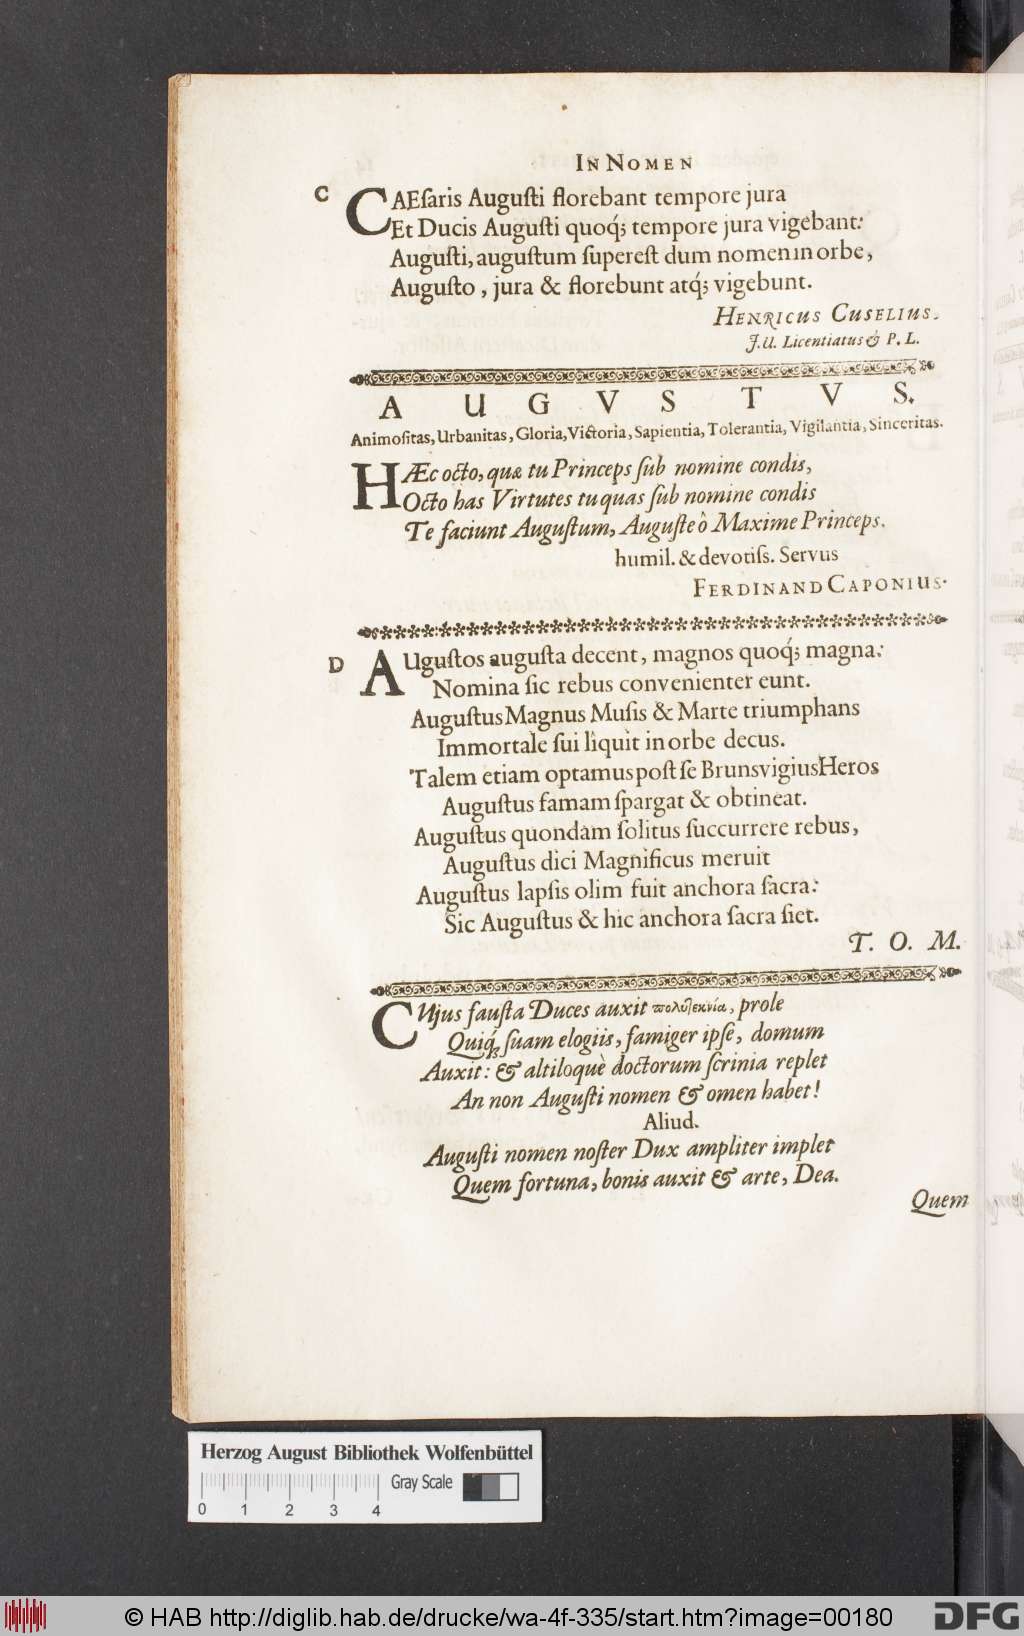 IN NOMEN
C
CAEſaris Auguſti florebant tempore jura
Et Ducis Auguſti quoq́; tempore jura vigebant:
Auguſti, auguſtum ſupereſt dum nomen in orbe,
Auguſto, jura & florebunt atq́; vigebunt.
HENRICUS CUSELIUS.
J.U. Licentiatus & P. L.
A U G V S T V S.
Animoſitas, Urbanitas, Gloria, Victoria, Sapientia, Tolerantia, Vigilantia, Sinceritas.
HÆc octo, quæ tu Princeps ſub nomine condis,
Octo has Virtutes tu quas ſub nomine condis
Te faciunt Auguſtum, Auguſte ô Maxime Princeps.
humil. & devotiſs. Servus
FERDINAND CAPONIUS.
D
AUguſtos auguſta decent, magnos quoq́; magna:
Nomina ſic rebus convenienter eunt.
Auguſtus Magnus Muſis & Marte triumphans
Immortale ſui liquit in orbe decus.
Talem etiam optamus poſt ſe Brunsvigius Heros
Auguſtus famam ſpargat & obtineat.
Auguſtus quondam ſolitus ſuccurrere rebus,
Auguſtus dici Magnificus meruit
Auguſtus lapſis olim fuit anchora ſacra:
Sic Auguſtus & hic anchora ſacra ſiet.
T. O. M.
CUjus fauſta Duces auxit πολυτεκνία, prole
Quiq́; ſuam elogiis, famiger ipſe, domum
Auxit: & altiloquè doctorum ſcrinia replet
An non Auguſti nomen & omen habet!
Aliud.
Auguſti nomen noſter Dux ampliter implet
Quem fortuna, bonis auxit & arte, Dea.
Quem
Herzog August Bibliothek Wolfenbüttel
Gray Scale
0 1 2 3 4
© HAB http://diglib.hab.de/drucke/wa-4f-335/start.htm?image=00180
DFG